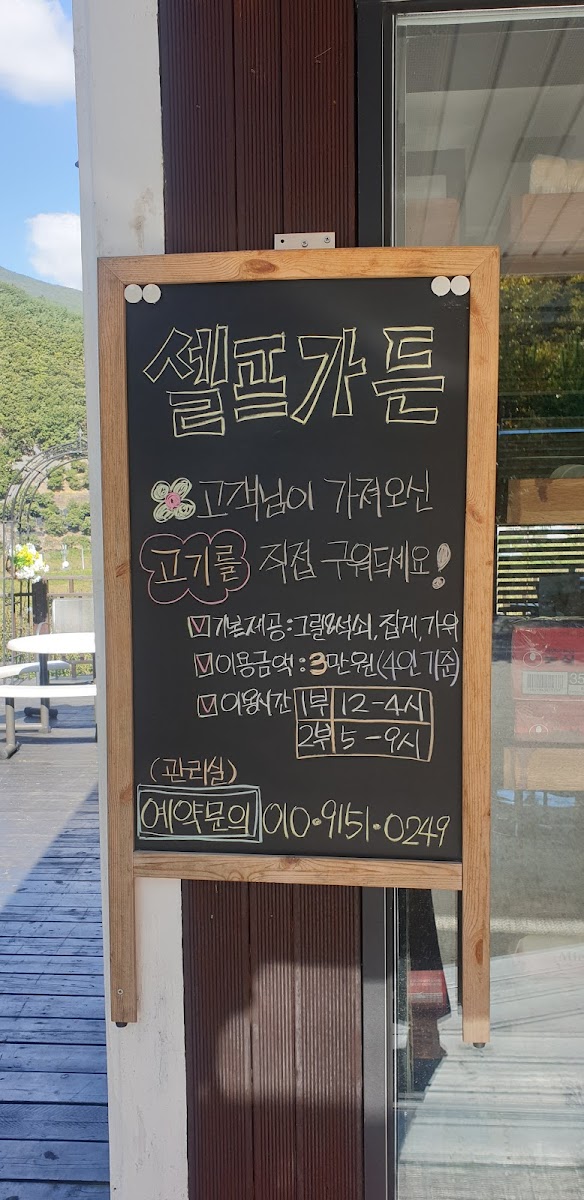 셀프가든
고객님이 가져오신
고기를 직접 구워드세요!
기본제공:그릴&석쇠,집게,가위
이용금액:3만원(4인기준)
이용시간 1부 12-4시
2부 5-9시
(관리실)
예약문의 010·9151·0249